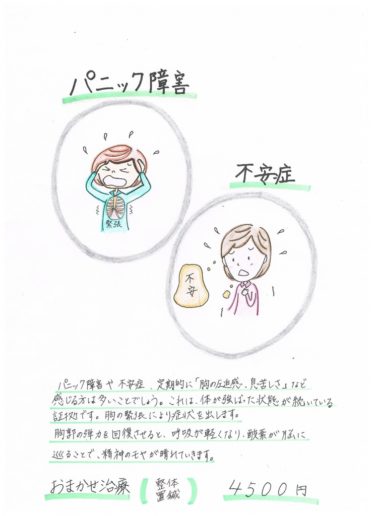 パニック障害
緊張
不安症
不安
パニック障害や不安症、定期的に「胸の圧迫感・息苦しさ」など
感じる方は多いことでしょう。これは、体が強ばった状態が続いている
証拠です。胸の緊張により症状を出します。
胸郭の弾力を回復させると、呼吸が軽くなり、酸素が脳に
巡ることで、精神のモヤが晴れていきます。
おまかせ治療(整体 置鍼) 4500円